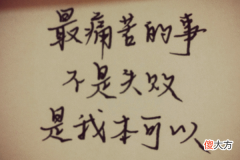 最痛苦的事
不是失败
是我本可以
傻大方